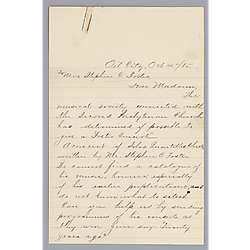 Oil City, Oct
To Mrs Stephen C. Foster
Dear Madam,
The
musical society connected with
the Second Presbyterian Church
has determined if possible to
give a Foster
A concert of Solos Quartettes &
written by Mr. Stephen C. Foster
We cannot find a catalogue of
his music, however, especially
of his earlier publications, and
do not know what to select
Can you help us by sending
programmes of his concerts as
they were given say twenty
years ago?